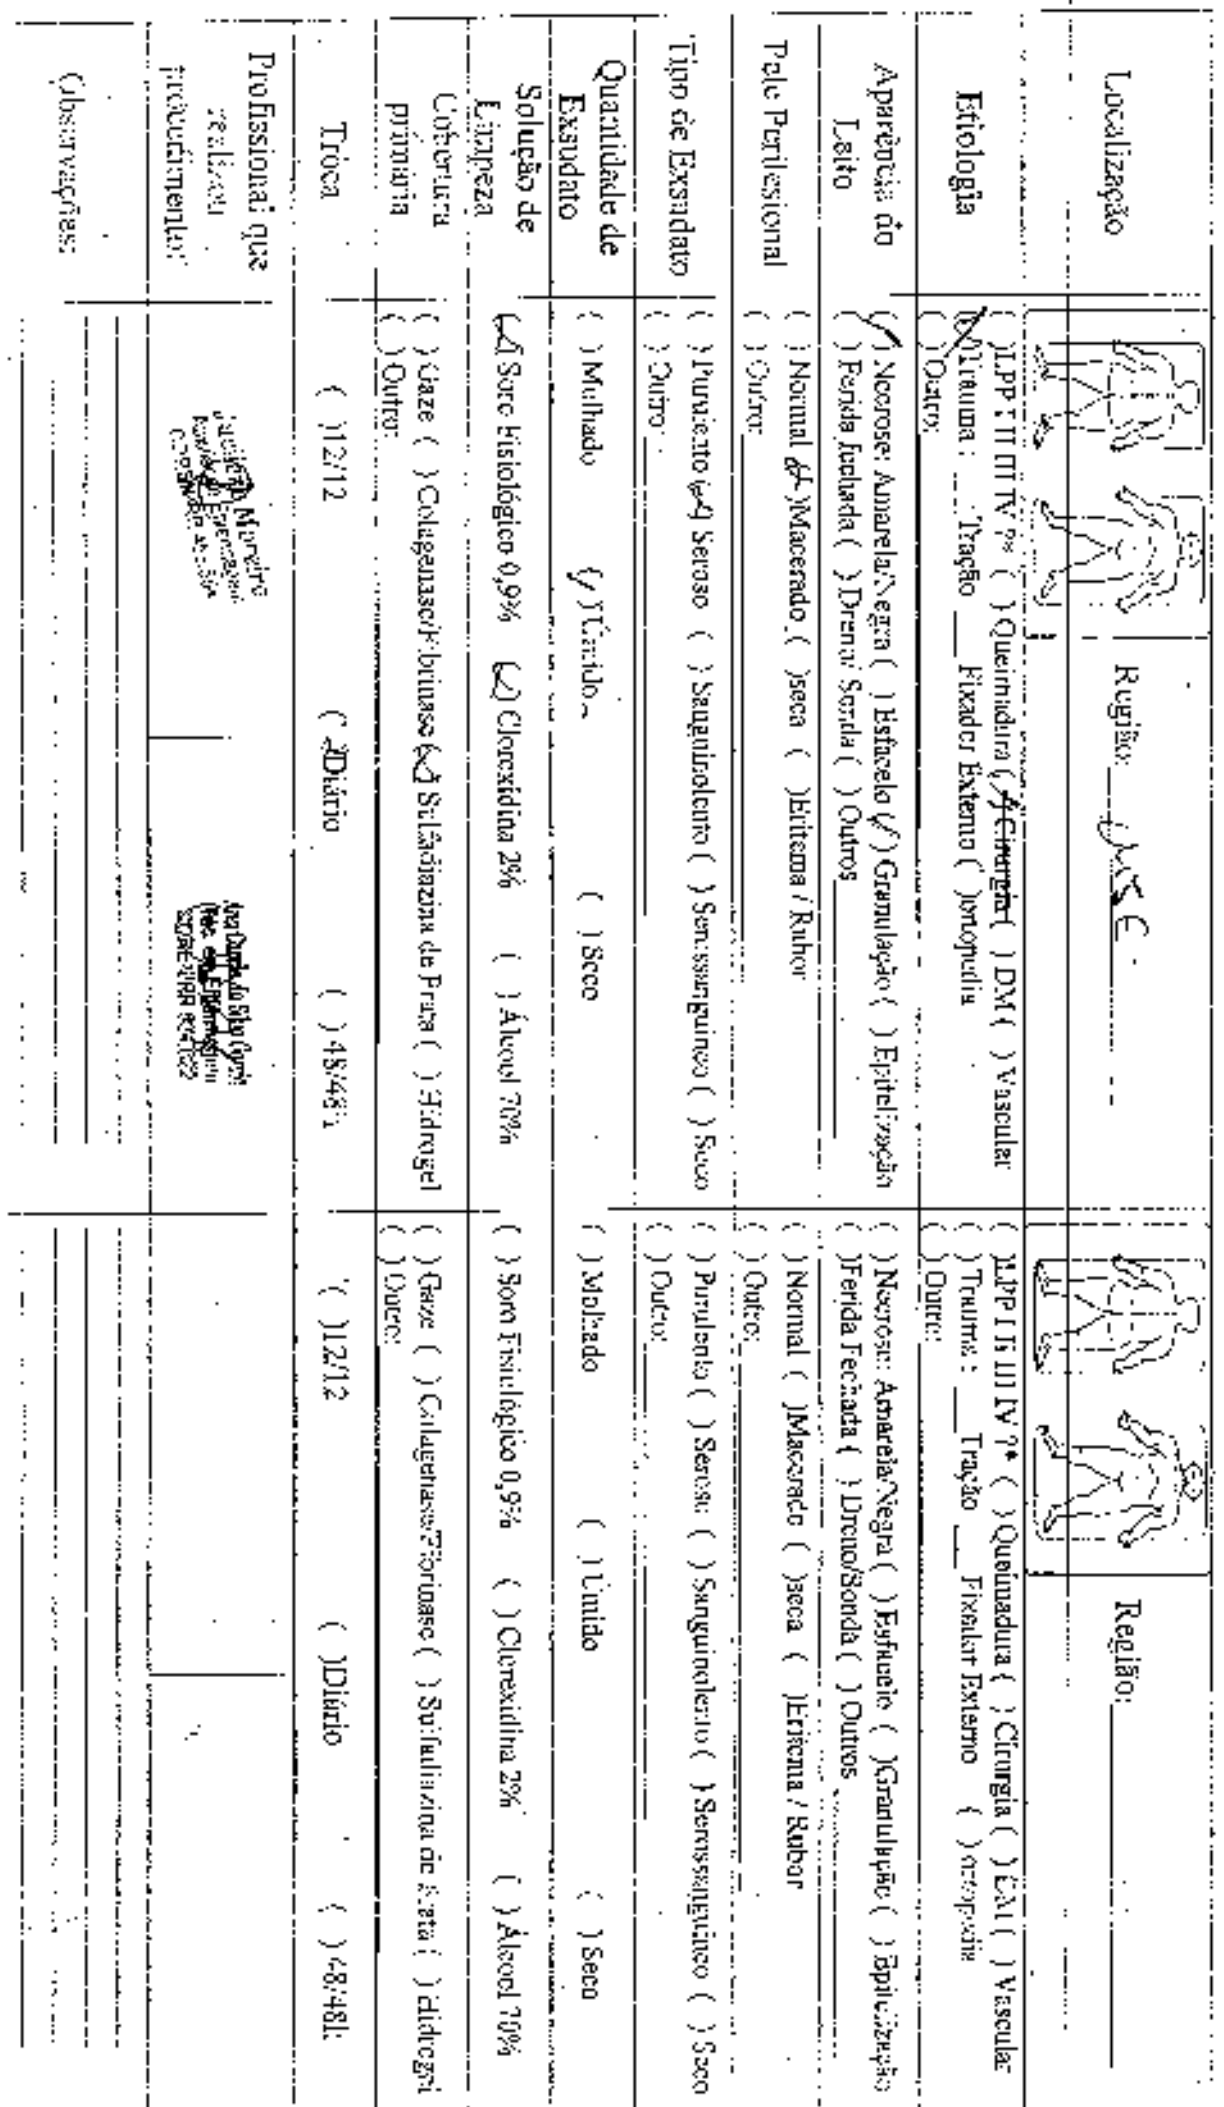 Localização
Região: MSE
Região:
Etiologia
( )LPP I II III IV ?* ( ) Queimadura (/) Cirurgia ( ) DM ( ) Vascular
(/)Trauma : ___ Tração ___ Fixador Externo ( )ortopedia
( ) Outro:
( )LPP I II III IV ?* ( ) Queimadura ( ) Cirurgia ( ) DM ( ) Vascular
( ) Trauma : ___ Tração ___ Fixador Externo ( ) ortopedia
( ) Outro:
Aparência do
Leito
(/) Necrose: Amarela/Negra ( ) Esfacelo (/) Granulação ( ) Epitelização
( ) Ferida fechada ( ) Dreno/ Sonda ( ) Outros
( ) Necrose: Amarela/Negra ( ) Esfacelo ( )Granulação ( ) Epitelização
( )Ferida Fechada ( ) Dreno/Sonda ( ) Outros
Pele Perilesional
( ) Normal (/)Macerado ( )seca ( )Eritema / Rubor
( ) Outro:
( ) Normal ( )Macerado ( )seca ( )Eritema / Rubor
( ) Outro:
Tipo de Exsudato
( ) Purulento (/) Seroso ( ) Sanguinolento ( ) Serossanguineo ( ) Seco
( ) Outro:
( ) Purulento ( ) Seroso ( ) Sanguinolento ( ) Serossanguineo ( ) Seco
( ) Outro:
Quantidade de
Exsudato
( ) Molhado (/) Úmido ( ) Seco
( ) Molhado ( ) Úmido ( ) Seco
Solução de
Limpeza
(/) Soro Fisiológico 0,9% (/) Clorexidina 2% ( ) Álcool 70%
( ) Soro Fisiológico 0,9% ( ) Clorexidina 2% ( ) Álcool 70%
Cobertura
primária
( ) Gaze ( ) Colagenase/Fibrinase (/) Sulfadiazina de Prata ( ) Hidrogel
( ) Outro:
( ) Gaze ( ) Colagenase/Fibrinase ( ) Sulfadiazina de Prata ( ) Hidrogel
( ) Outro:
Troca
( )12/12 (/)Diário ( ) 48/48h
( )12/12 ( )Diário ( ) 48/48h
Profissional que
realizou
procedimento:
Moreira
Observações: